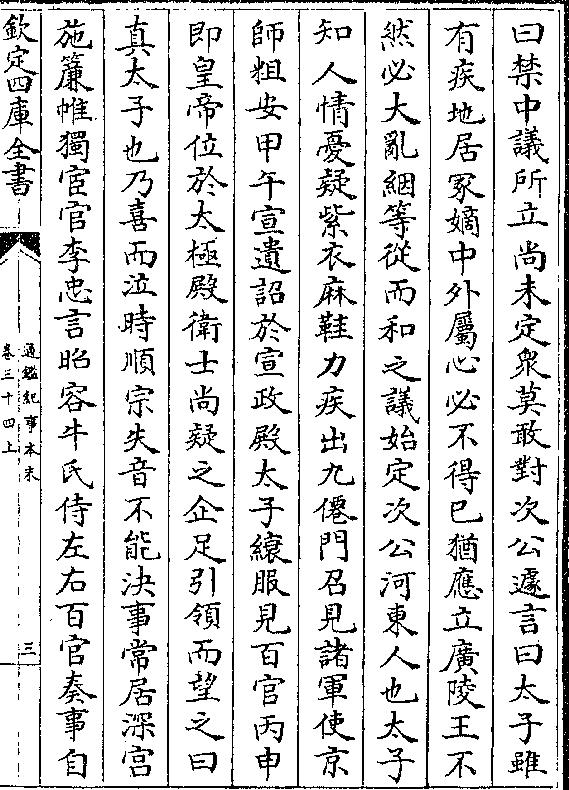 曰禁中議所立尚未定衆莫敢對次公遽言曰太子雖
有疾地居冢嫡中外屬心必不得已猶應立廣陵王不
然必大亂絪等從而和之議始定次公河東人也太子
知人情憂疑紫衣麻鞋力疾出九僊門召見諸軍使京
師粗安甲午宣遺詔於宣政殿太子縗服見百官丙申
即皇帝位於太極殿衛士尚疑之企足引領而望之曰
真太子也乃喜而泣時順宗失音不能決事常居深宫
施簾帷獨宦官李忠言昭容牛氏侍左右百官奏事自
欽定四庫全書
通鑑紀事本末
卷三十四上
三